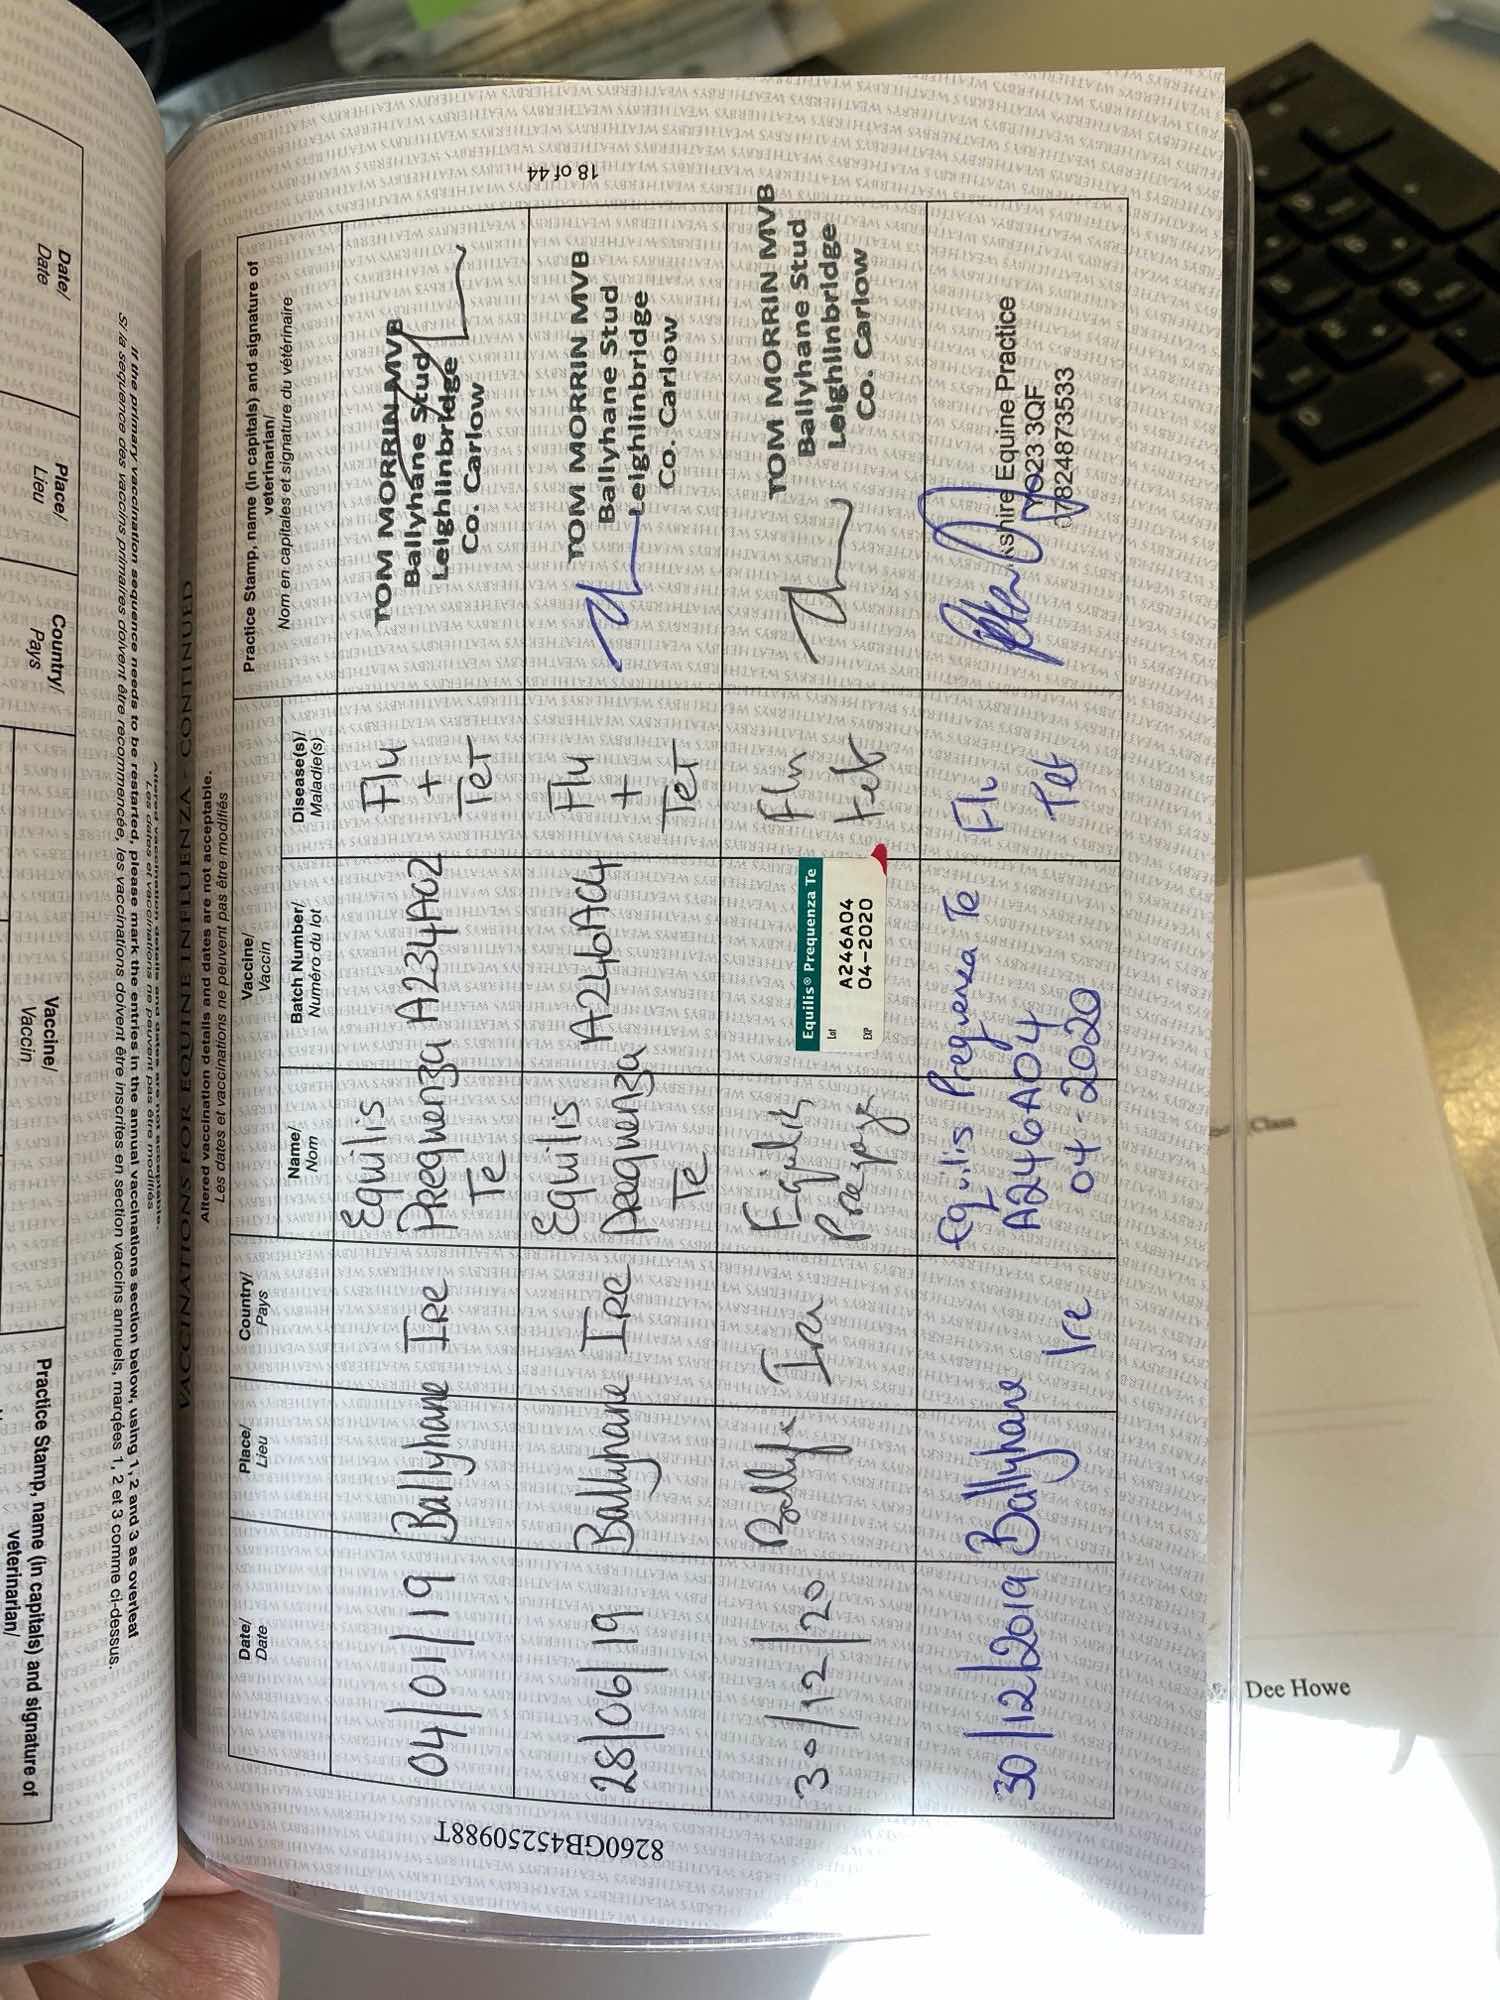 Date/
Date
Place/
Lieu
Country/
Pays
Vaccine/
Vaccin
Practice Stamp, name (in capitals) and signature of
veterinarian/
If the primary vaccination sequence needs to be restarted, please mark the entries in the annual vaccinations section below, using 1, 2 and 3 as overleaf
Si la séquence des vaccins primaires doivent être recommencée, les vaccinations doivent être inscrites en section vaccins annuels, marqées 1, 2 et 3 comme ci-dessus.
Altered vaccination details and dates are not acceptable.
Les dates et vaccinations ne peuvent pas être modifiés
VACCINATIONS FOR EQUINE INFLUENZA - CONTINUED
Altered vaccination details and dates are not acceptable.
Les dates et vaccinations ne peuvent pas être modifiés
Date/
Date
Place/
Lieu
Country/
Pays
Vaccine/
Vaccin
Name/
Nom
Batch Number/
Numéro du lot
Disease(s)/
Maladie(s)
Practice Stamp, name (in capitals) and signature of
veterinarian/
Nom en capitales et signature du vétérinaire
04/01/19 Ballyhane Ire
Equilis
Prequenza
Te
A234A02
Flu
+
Tet
TOM MORRIN MVB
Ballyhane Stud
Leighlinbridge
Co. Carlow
28/06/19 Ballyhane Ire
Equilis
Prequenza
Te
A246A04
Flu
+
Tet
TOM MORRIN MVB
Ballyhane Stud
Leighlinbridge
Co. Carlow
30/12/20
Equilis
Equilis® Prequenza Te
Lot A246A04
EXP 04-2020
Flu
Tet
TOM MORRIN MVB
Ballyhane Stud
Leighlinbridge
Co. Carlow
30/12/2019 Ballyhane Ire
Equilis Prequenza Te
A246A04
04-2020
Flu
Tet
shire Equine Practice
YO23 3QF
07824873533
18 of 44
8260GB45250988T
Class
Dee Howe